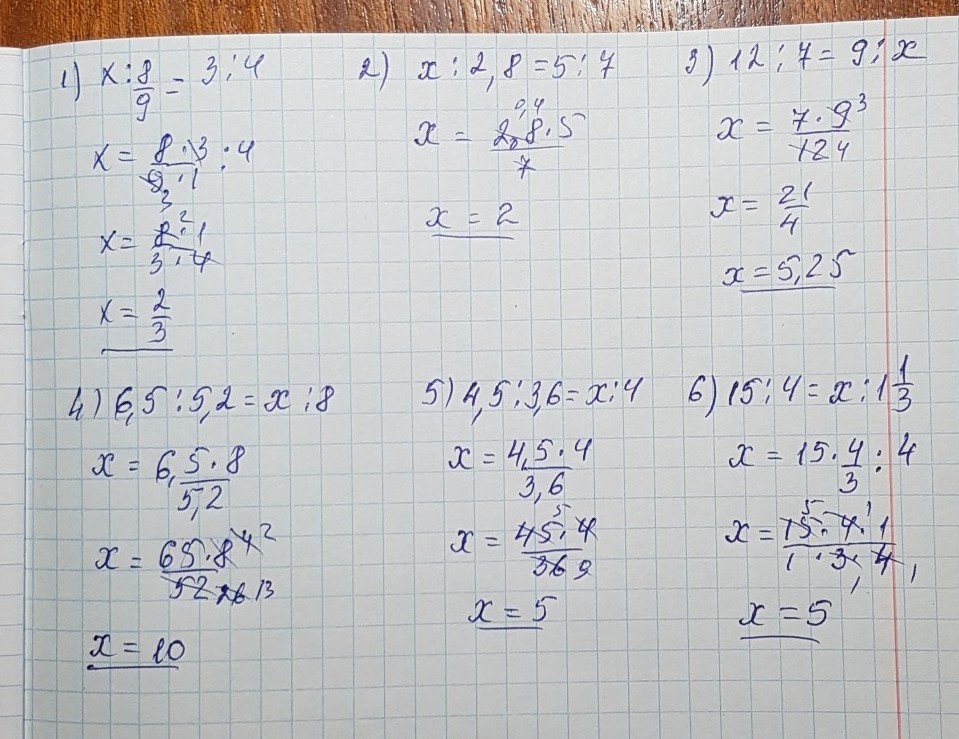 1) x : 8/9 = 3 : 4
x = 8·3/9·1 : 4
3
x = 8·1/3·4
2
x = 2/3
2) x : 2,8 = 5 : 7
0,4
x = 2,8·5/7
x = 2
3) 12 : 7 = 9 : x
x = 7·9/12
3
4
x = 21/4
x = 5,25
4) 6,5 : 5,2 = x : 8
x = 6,5·8/5,2
x = 65·8/52
4 2
26 13
x = 10
5) 4,5 : 3,6 = x : 4
x = 4,5·4/3,6
5
x = 45·4/36
9
x = 5
6) 15 : 4 = x : 1 1/3
x = 15·4/3 : 4
5 1
x = 15·4·1/1·3·4
1 1
x = 5